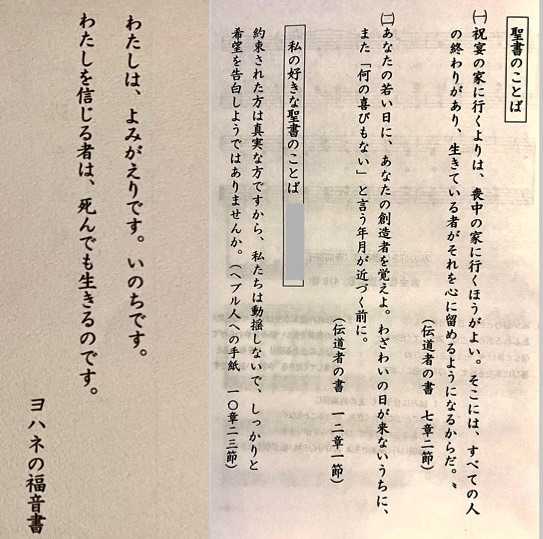 聖書のことば
㈠ 祝宴の家に行くよりは、喪中の家に行くほうがよい。そこには、すべての人
の終わりがあり、生きている者がそれを心に留めるようになるからだ。〟
（伝道者の書 七章二節）
㈡ あなたの若い日に、あなたの創造者を覚えよ。わざわいの日が来ないうちに、
また「何の喜びもない」と言う年月が近づく前に。
（伝道者の書 一二章一節）
私の好きな聖書のことば
約束された方は真実な方ですから、私たちは動揺しないで、しっかりと
希望を告白しようではありませんか。（ヘブル人への手紙 一〇章二三節）
わたしは、よみがえりです。いのちです。
わたしを信じる者は、死んでも生きるのです。
ヨハネの福音書